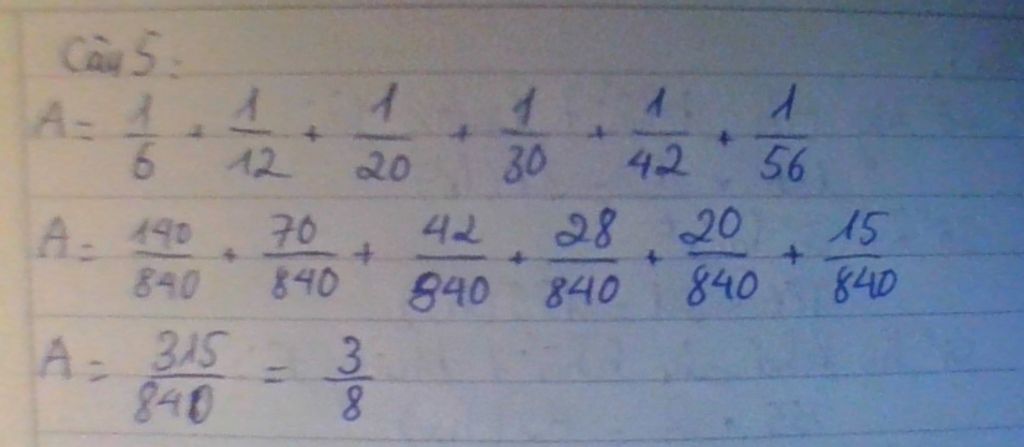 Câu 5:
A = 1/6 + 1/12 + 1/20 + 1/30 + 1/42 + 1/56
A = 140/840 + 70/840 + 42/840 + 28/840 + 20/840 + 15/840
A = 315/840 = 3/8